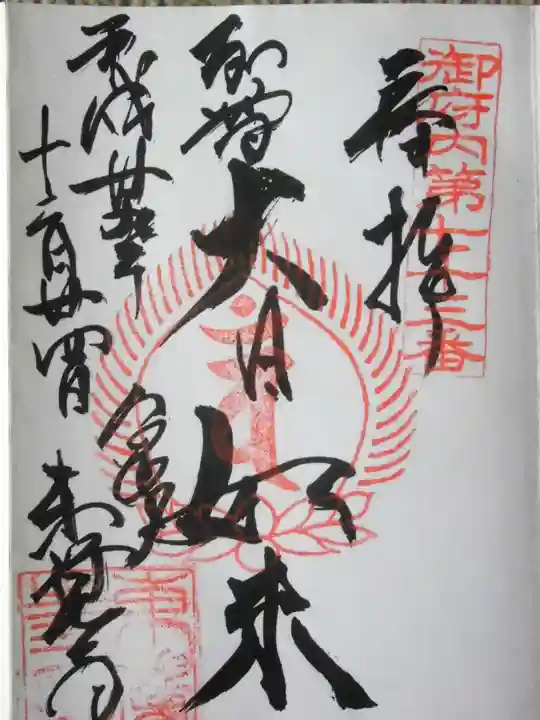 御府内第七十三番
奉拝
大日如来
平成廿年
廿四日
亀戸
東覚寺